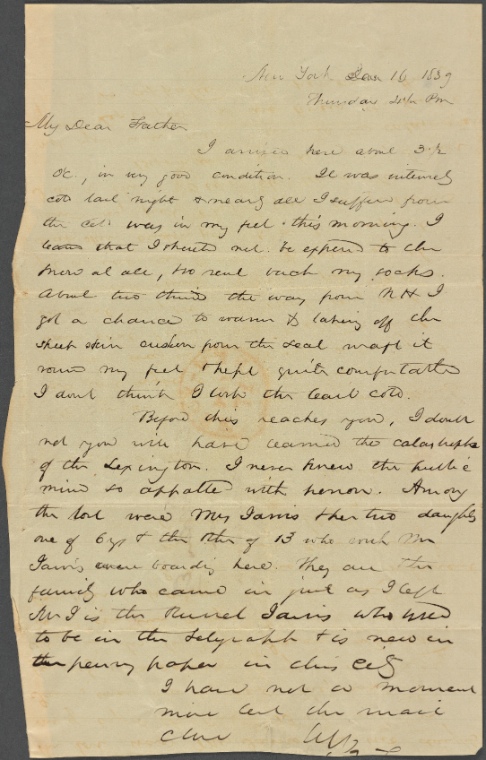 New York Jan 16 1839
Thursday 2½ Pm
My Dear Father
I arrived here about 2½
oc, in very good condition. It was intensely
cold last night & nearly all I suffer from
the cold was in my feet this morning. I
learn that I should not be exposed to the
snow at all, so sent back my socks.
About two thirds the way from NH I
got a chance to warm & taking off the
sheep skin cushion from the seat wrapt it
round my feet & kept quite comfortable
I dont think I took the least cold.
Before this reaches you, I doubt
not you will have learned the catastrophe
of the Lexington. I never knew the public
mind so appalled with horror. Among
the lost were Mrs Jarvis & her two daughters
one of 6 yrs & the other of 13 who with Mr
Jarvis were boarding here. They are the
family who came in just as I left
Mr J is the Russel Jarvis who used
to be in the Telegraph & is now in
the penny paper in this city
I have not a moment
more lest the mail
close